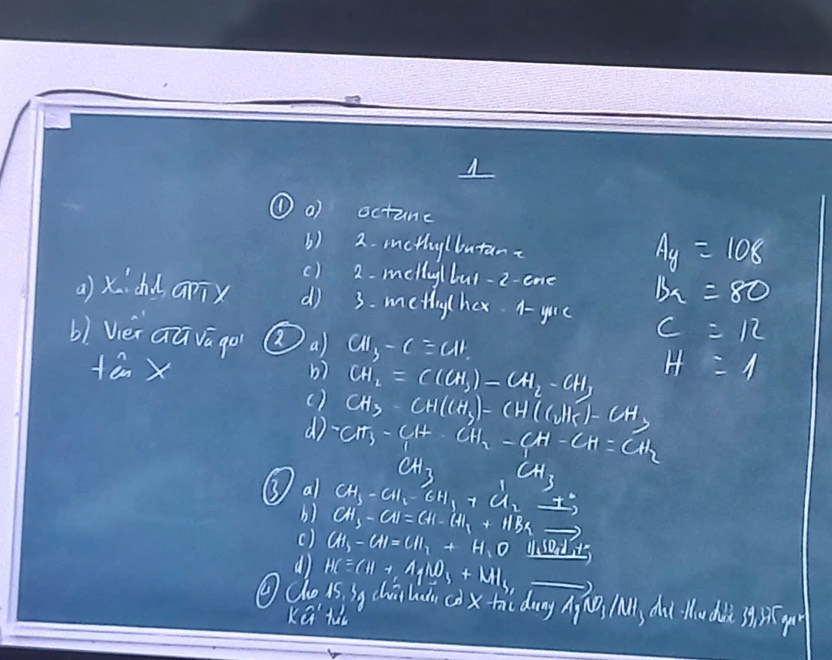 1
① a) octane
b) 2-methylbutane
c) 2-methylbut-2-ene
d) 3-methylhex-1-yne
Ag = 108
Br = 80
C = 12
H = 1
a) Xác định CTPT X
b) Viết CTCT và gọi
tên X
② a) CH3 - C ≡ CH
b) CH2 = C(CH3) - CH2 - CH3
c) CH3 - CH(CH3) - CH(C2H5) - CH3
d) CH3 - CH - CH2 - CH - CH = CH2
CH3 CH3
③ a) CH3 - CH2 - CH3 + Cl2
b) CH3 - CH = CH - CH3 + HBr →
c) CH3 - CH = CH2 + H2O
d) HC ≡ CH + AgNO3 + NH3 →
④ Cho 15,3g chất hữu cơ X tác dụng AgNO3/NH3 dư thu được 39,375 gam
kết tủa